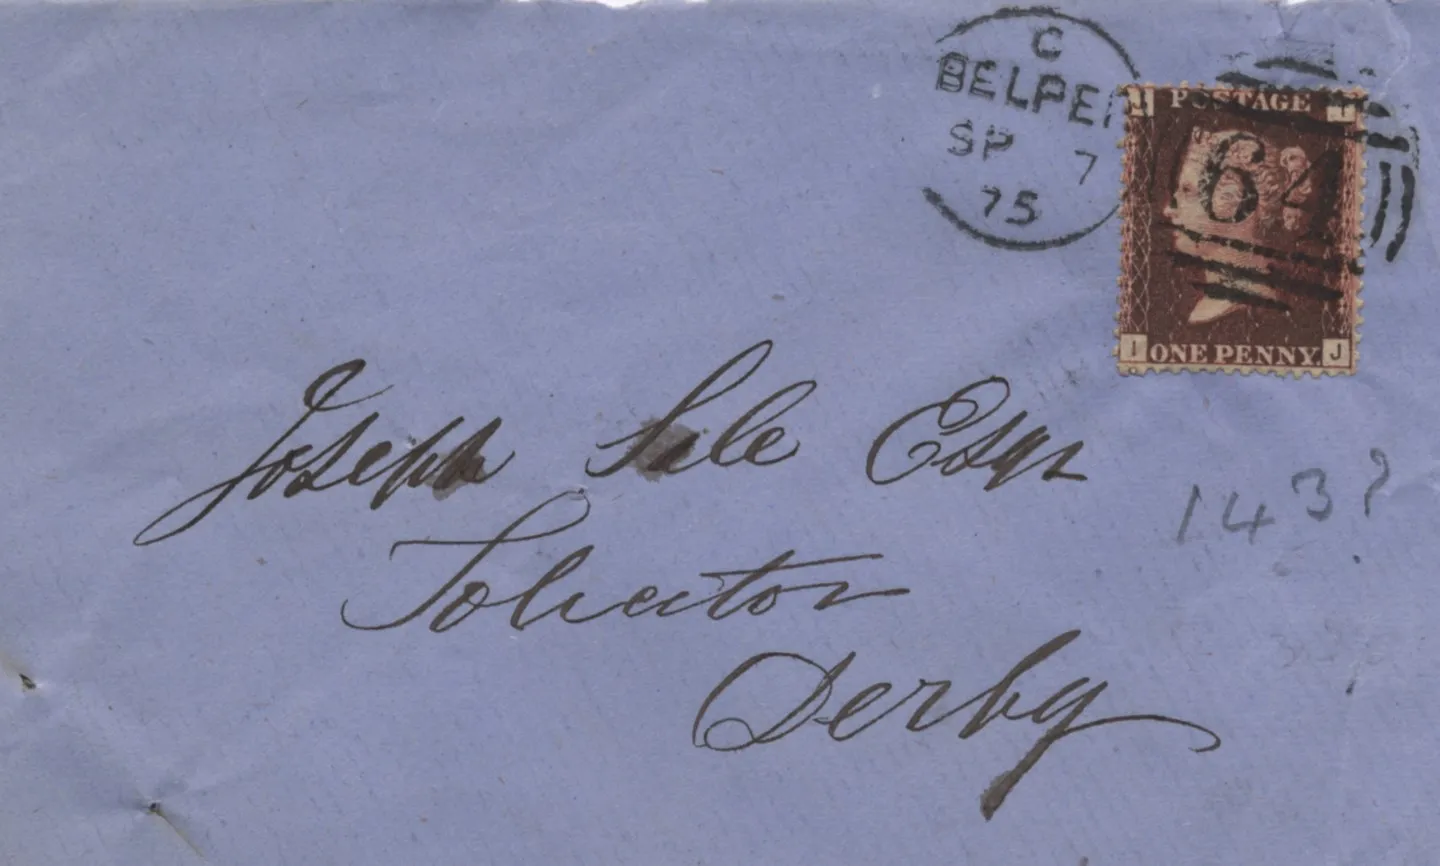 C
BELPER
SP 7
75
POSTAGE
64
I ONE PENNY. J
Joseph Sale Esqr
Solicitor
Derby
143?